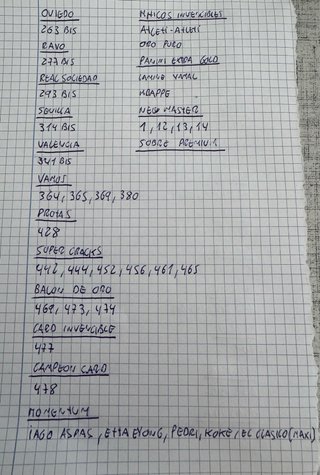 OVIEDO
263 BIS
RAYO
277 BIS
REAL SOCIEDAD
293 BIS
SEVILLA
314 BIS
VALENCIA
341 BIS
VAMOS
364, 365, 369, 380
PROTAS
428
SUPER CRACKS
442, 444, 452, 456, 461, 465
BALON DE ORO
469, 473, 474
CARD INVENCIBLE
477
CAMPEON CARD
478
MOMENTUM
IAGO ASPAS, ETTA EYONG, PEDRI, KOKE, EL CLASICO (MAXI)
MAGICOS INVENCIBLES
ATLETI-ATLETI
ORO PURO
PANINI EXTRA GOLD
LAMINE YAMAL
MBAPPE
NEO MASTER
1, 12, 13, 14
SOBRE PREMIUM